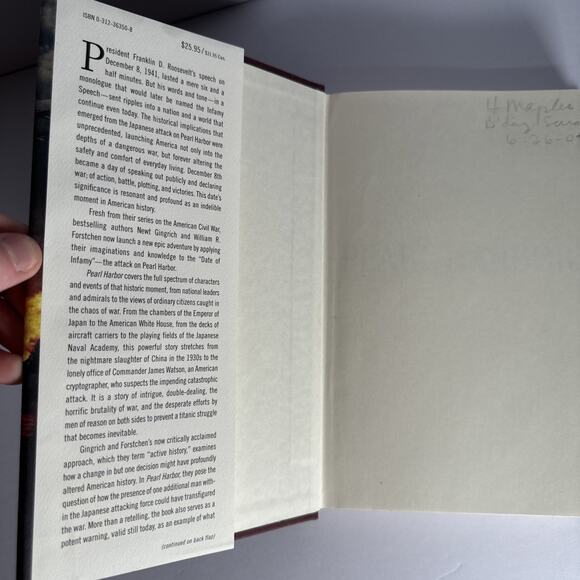 ISBN 0-312-36350-8
$25.95 / $31.95 Can.
President Franklin D. Roosevelt's speech on
December 8, 1941, lasted a mere six and a
half minutes. But his words and tone—in a
monologue that would later be named the Infamy
Speech—sent ripples into a nation and a world that
continue even today. The historical implications that
emerged from the Japanese attack on Pearl Harbor were
unprecedented, launching America not only into the
depths of a dangerous war, but forever altering the
safety and comfort of everyday living. December 8th
became a day of speaking out publicly and declaring
war; of action, battle, plotting, and victories. This date's
significance is resonant and profound as an indelible
moment in American history.
Fresh from their series on the American Civil War,
bestselling authors Newt Gingrich and William R.
Forstchen now launch a new epic adventure by applying
their imaginations and knowledge to the "Date of
Infamy"—the attack on Pearl Harbor.
Pearl Harbor covers the full spectrum of characters
and events of that historic moment, from national leaders
and admirals to the views of ordinary citizens caught in
the chaos of war. From the chambers of the Emperor of
Japan to the American White House, from the decks of
aircraft carriers to the playing fields of the Japanese
Naval Academy, this powerful story stretches from
the nightmare slaughter of China in the 1930s to the
lonely office of Commander James Watson, an American
cryptographer, who suspects the impending catastrophic
attack. It is a story of intrigue, double-dealing, the
horrific brutality of war, and the desperate efforts by
men of reason on both sides to prevent a titanic struggle
that becomes inevitable.
Gingrich and Forstchen's now critically acclaimed
approach, which they term "active history," examines
how a change in but one decision might have profoundly
altered American history. In Pearl Harbor, they pose the
question of how the presence of one additional man with-
in the Japanese attacking force could have transfigured
the war. More than a retelling, the book also serves as a
potent warning, valid still today, as an example of what
(continued on back flap)
4 Maples
B'day
6-26-0